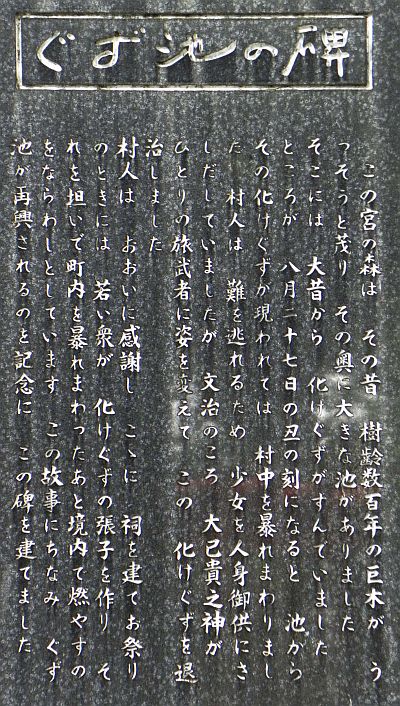 ぐず池の碑
この宮の森は その昔 樹齢数百年の巨木が う
っそうと茂り その奥に大きな池がありました
そこには 大昔から 化けぐずがすんでいました
ところが 八月二十七日の丑の刻になると 池から
その化けぐずが現われては 村中を暴れまわりまし
た 村人は 難を逃れるため 少女を人身御供にさ
しだしていましたが 文治のころ 大己貴之神が
ひとりの旅武者に姿を変えて この 化けぐずを退
治しました
村人は おおいに感謝し こゝに 祠を建てお祭り
のときには 若い衆が 化けぐずの張子を作り そ
れを担いで町内を暴れまわったあと境内で燃やすの
をならわしとしています この故事にちなみ ぐず
池が再興されるのを記念に この碑を建てました